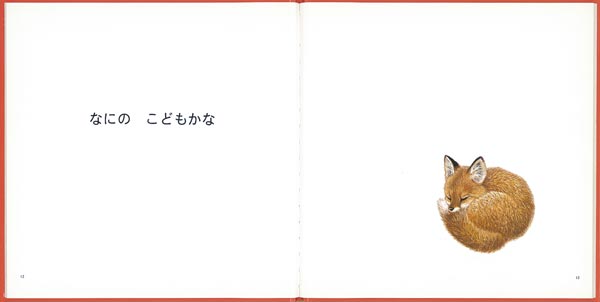 なにの　こどもかな
12
13